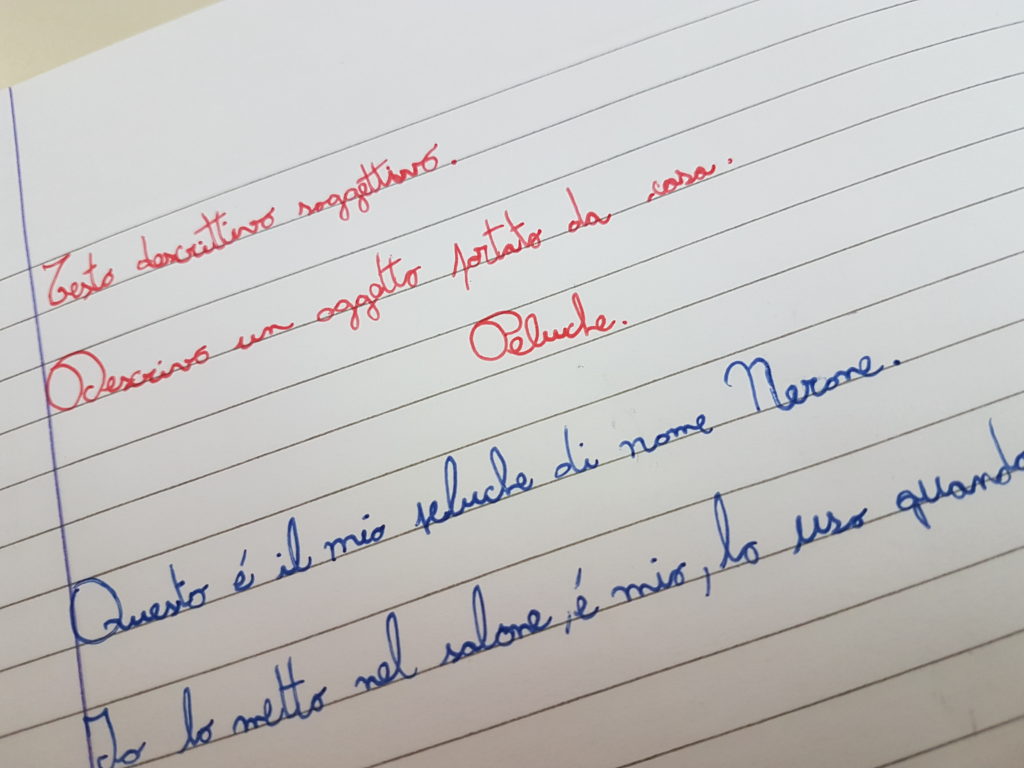 Testo descrittivo soggettivo.
Descrivo un oggetto portato da casa.
Peluche.
Questo é il mio peluche di nome Nerone.
Io lo metto nel salone, é mio, lo uso quando